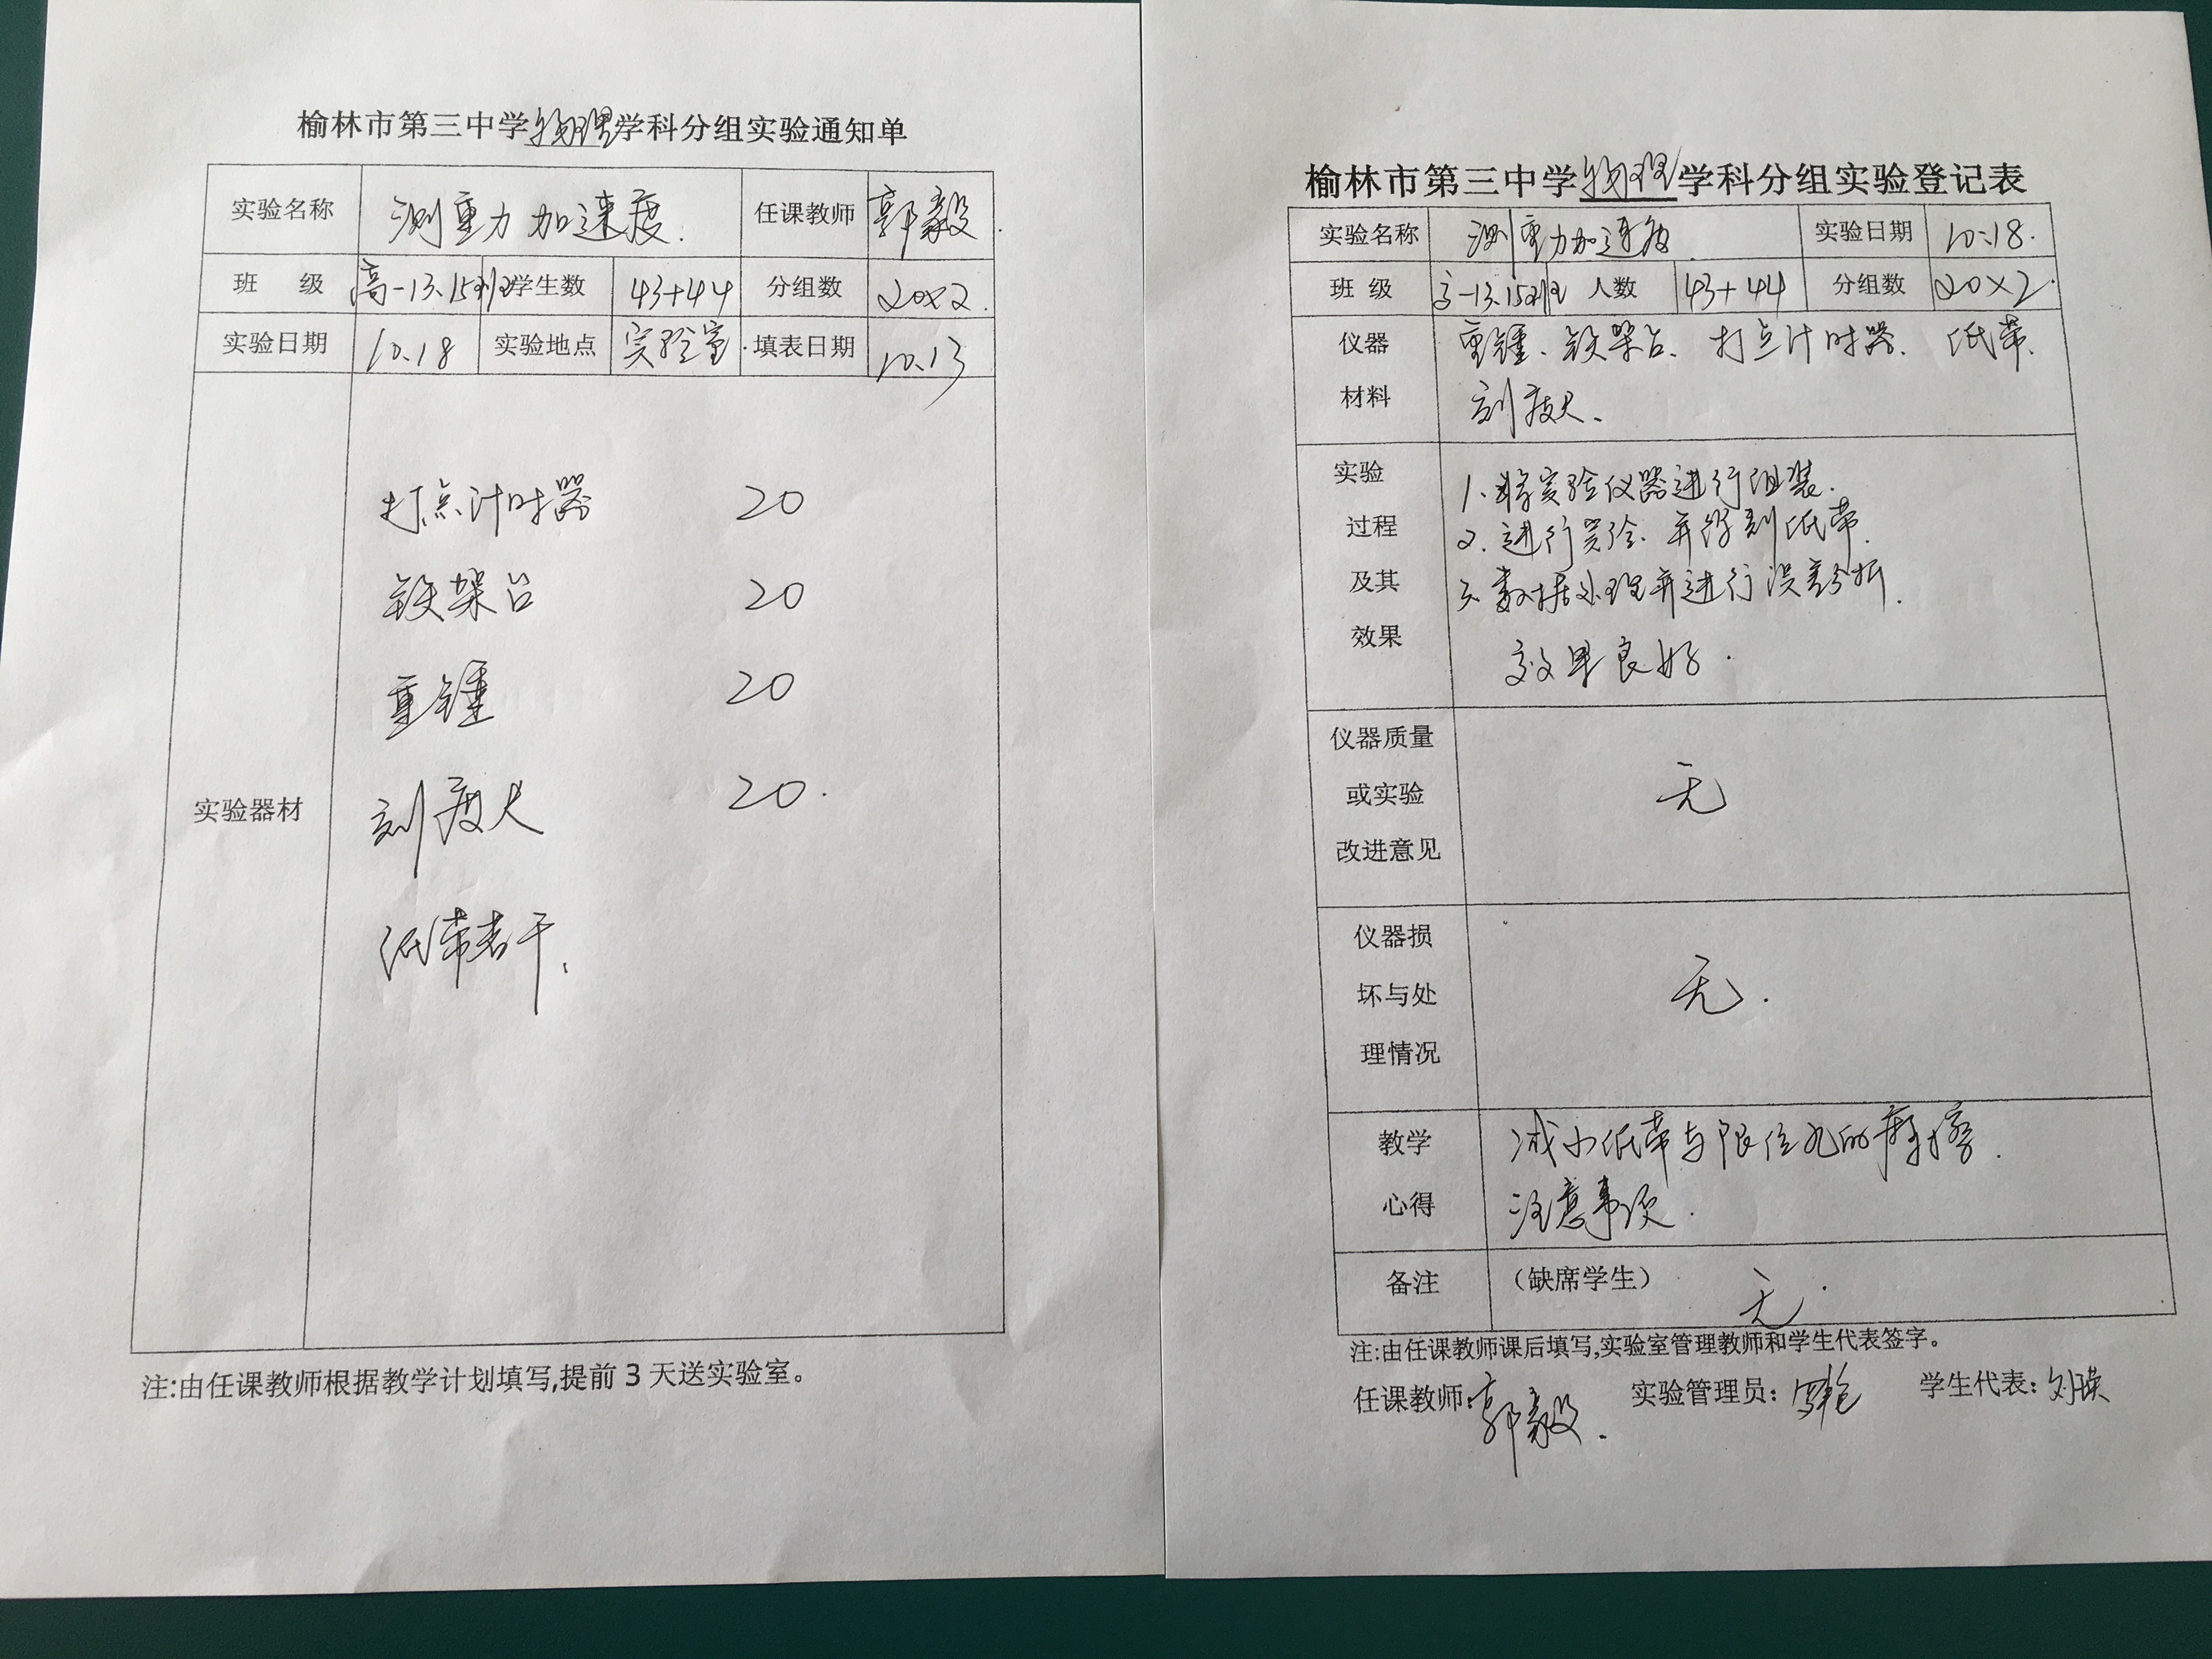 榆林市第三中学物理学科分组实验通知单
实验名称 测重力加速度. 任课教师 郭毅.
班 级 高一13.15班 学生数 43+44 分组数 20×2.
实验日期 10.18 实验地点 实验室. 填表日期 10.13
实验器材
打点计时器 20
铁架台 20
重锤 20
刻度尺 20.
纸带若干.
注:由任课教师根据教学计划填写,提前3天送实验室。
榆林市第三中学物理学科分组实验登记表
实验名称 测重力加速度. 实验日期 10.18.
班 级 高一13.15班 人数 43+44 分组数 20×2.
仪器 重锤、铁架台、打点计时器、纸带、
材料 刻度尺、
实验 1.将实验仪器进行组装.
过程 2.进行实验.并得到纸带.
及其 3.数据处理并进行误差分析.
效果 效果良好.
仪器质量
或实验 无
改进意见
仪器损
坏与处 无.
理情况
教学 减小纸带与限位孔的摩擦.
心得 注意事项.
备注 (缺席学生) 无.
注:由任课教师课后填写,实验室管理教师和学生代表签字。
任课教师:郭毅. 实验管理员: 学生代表: